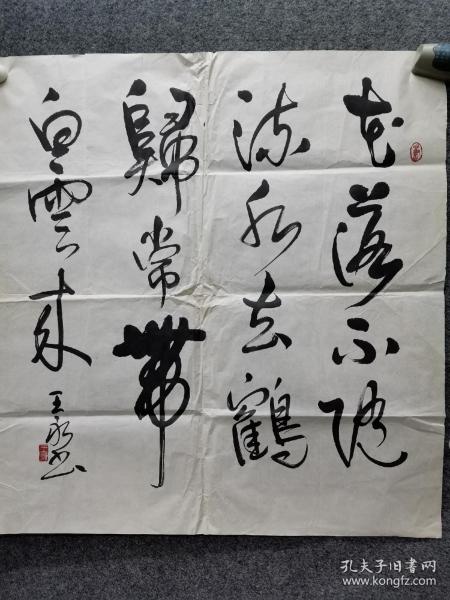 花落不随
流水去鹤
歸常帶
白雲来
王永书
孔夫子旧书网
www.kongfz.com